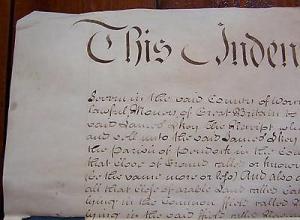 This Inden
in the said County of
lawful Money of Great Britain to
said James the Receipt
and sell unto the said James
the parish of in the Co
that Close of Ground called or known
(or the same more or less) And also a
all that Close of arable Land called
lying in the Common field called
lying in the said field called